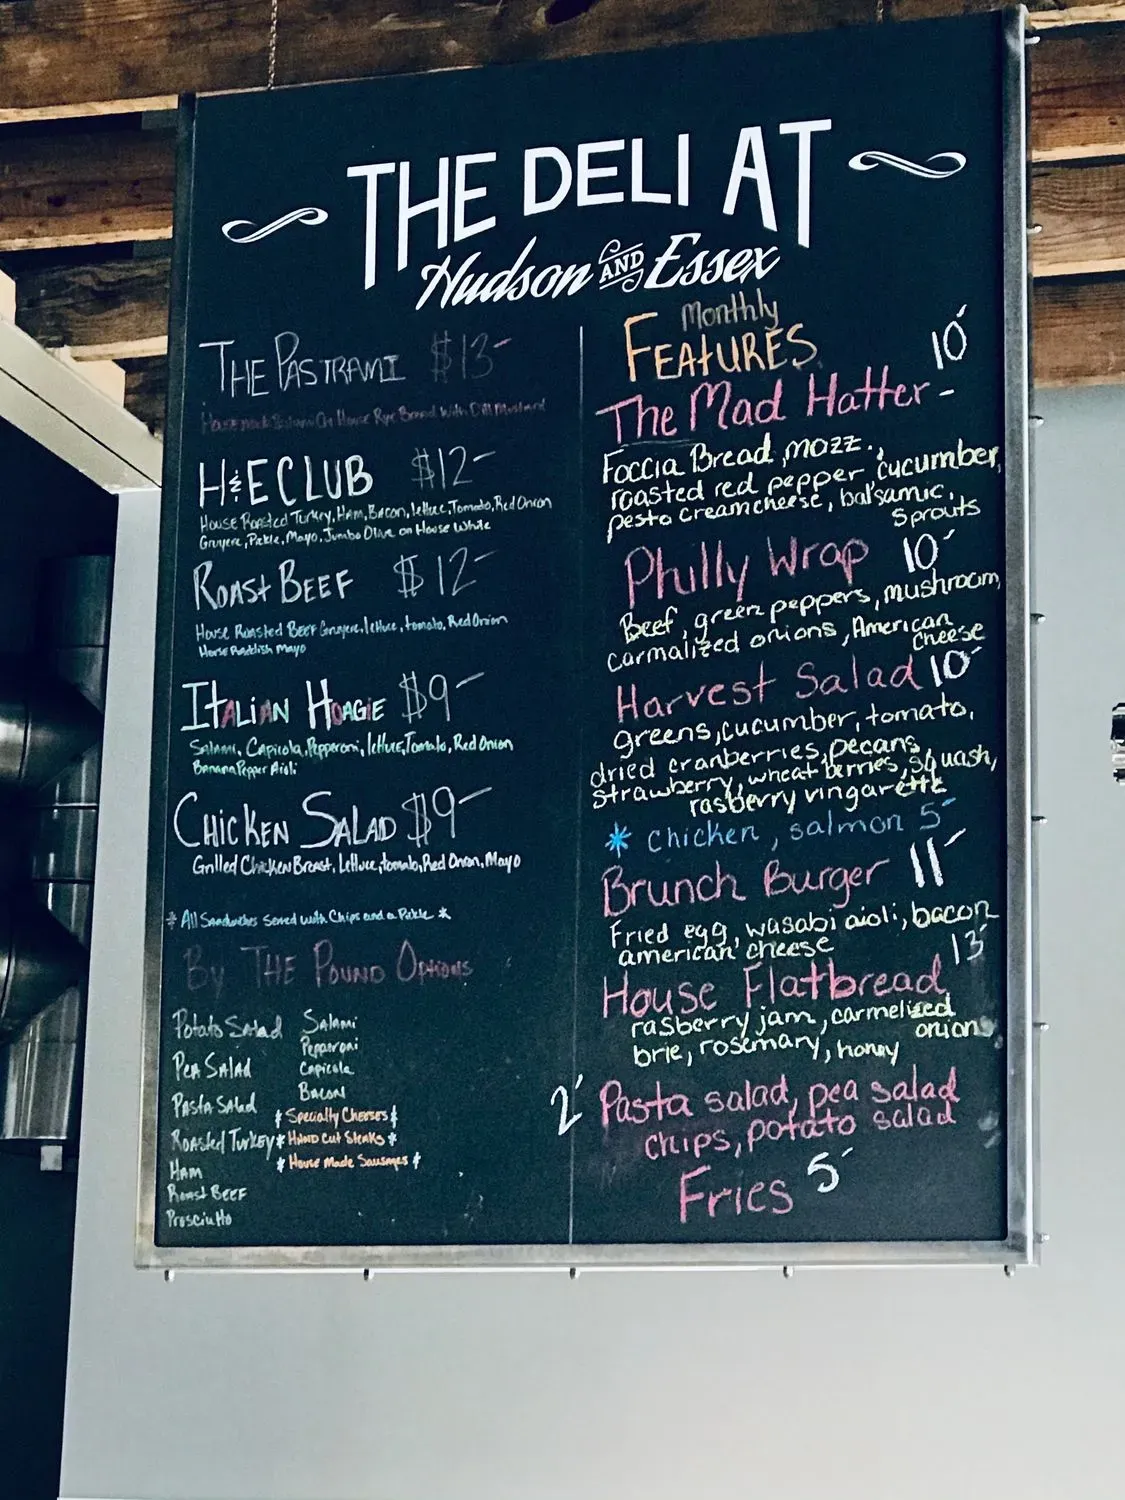 THE DELI AT
Hudson AND Essex
THE PASTRAMI $13-
House made Pastrami On House Rye Bread with Dill Mustard
H&E CLUB $12-
House Roasted Turkey, Ham, Bacon, lettuce, Tomato, Red Onion
Gruyere, Pickle, Mayo, Jumbo Olive on House White
ROAST BEEF $12-
House Roasted Beef Gruyere, lettuce, tomato, Red Onion
House Raddish Mayo
ITALIAN HOAGIE $9-
Salami, Capicola, Pepperoni, lettuce, Tomato, Red Onion
Banana Pepper Aioli
CHICKEN SALAD $9-
Grilled Chicken Breast, Lettuce, tomato, Red Onion, Mayo
* All Sandwiches Served with Chips and a Pickle *
By THE POUND OPTIONS
Potato Salad
PEA SALAD
PASTA SALAD
ROASTED TURKEY
HAM
ROAST BEEF
Prosciutto
Salami
Peperoni
Capicola
BACON
* Specialty Cheeses *
* HAND CUT STEAKS *
* House Made Sausages *
Monthly
FEAtURES
The Mad Hatter - 10-
Foccia Bread, mozz.,
roasted red pepper cucumber,
pesto creamcheese, balsamic,
sprouts
Philly Wrap 10-
Beef, green peppers, mushroom,
carmalized onions, American
cheese
Harvest Salad 10-
greens, cucumber, tomato,
dried cranberries, pecans,
strawberry, wheat berries, squash,
rasberry vingarette
* chicken, salmon 5-
Brunch Burger 11-
Fried egg, wasabi aioli, bacon
american cheese
House Flatbread 13-
rasberry jam, carmelized
onions
brie, rosemary, honny
2- Pasta salad, pea salad
chips, potato salad
Fries 5-